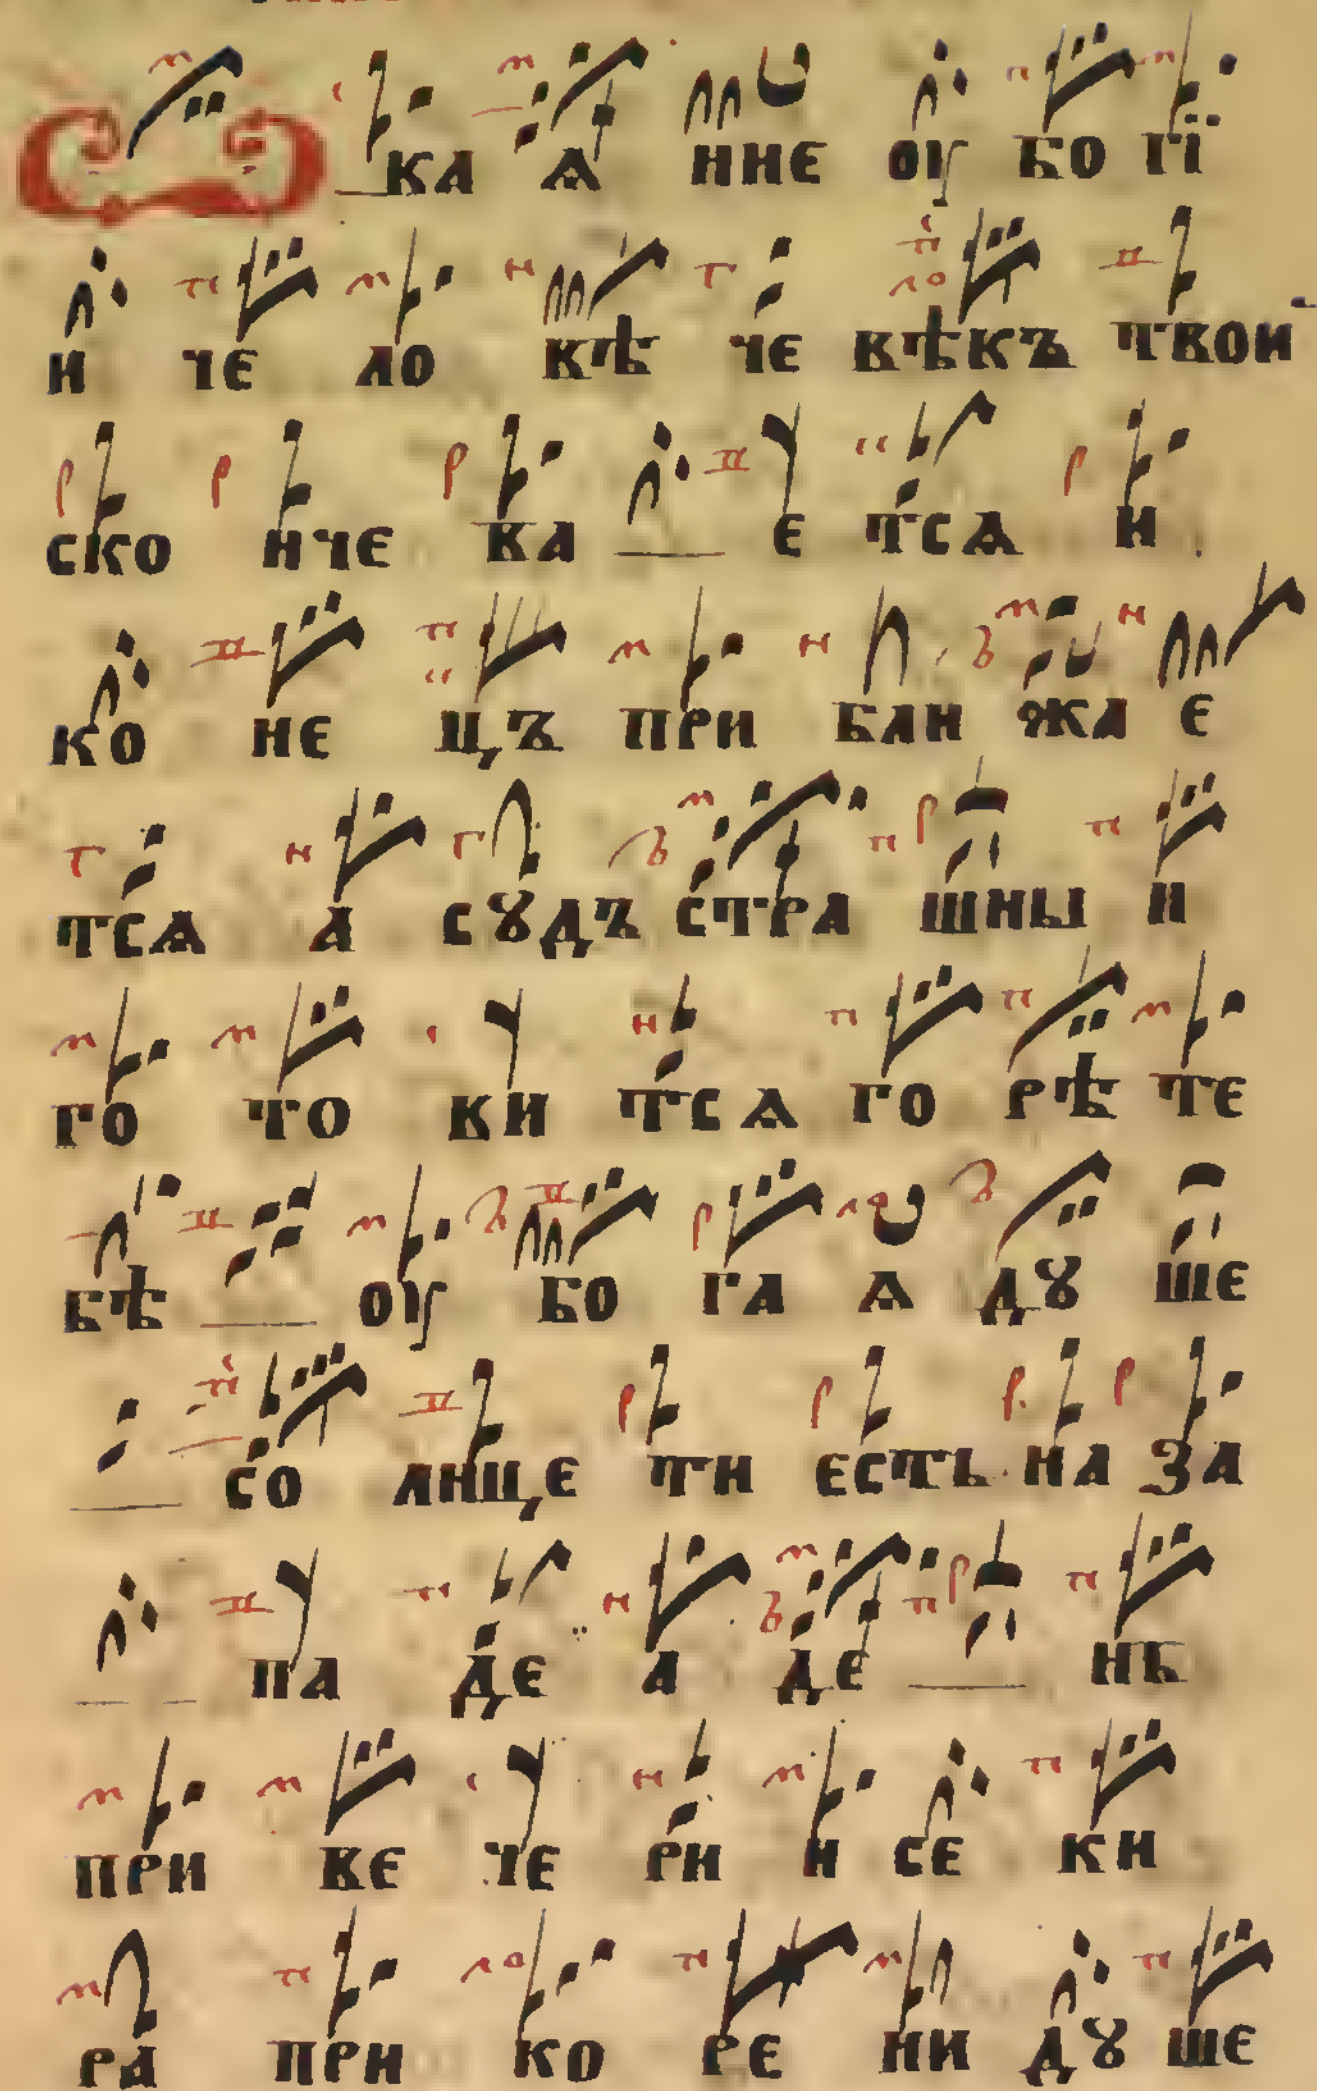 Ѡ КА Ѧ ННЕ ОУ БО ГЇ
И ЧЕ ЛО ВѢ ЧЕ ВѢКЪ ТВОИ
СКО НЧЕ ВА Е ТСѦ И
КО НЕ ЦЪ ПРИ БЛИ ЖА Е
ТСѦ А СꙋДЪ СТРА ШНЫ И
ГО ТО ВИ ТСѦ ГО РѢ ТЕ
БѢ ОУ БО ГА Ѧ Дꙋ ШЕ
СО ЛНЦЕ ТИ ЕСТЬ НА ЗА
ПА ДЕ А ДЕ НЬ
ПРИ ВЕ ЧЕ РИ И СЕ КИ
РА ПРИ КО РЕ НИ Дꙋ ШЕ